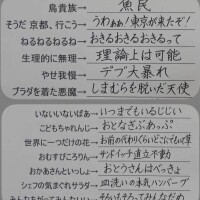 鳥貴族→魚民
そうだ 京都、行こう→うわぁぁ!東京が来たぞ!
ねるねるねるね→おきるおきるおきるって
生理的に無理→理論上は可能
やせ我慢→デブ大暴れ
プラダを着た悪魔→しまむらを脱いだ天使
いないいないばあ→いつまでもいるじじい
こどもちゃれんじ→おとなぎぶあっぷ
世界に一つだけの花→お前の代わりなどいくらでもいる草
おむすびころりん→サンドイッチ直立不動
おかあさんといっしょ→おとうさんはべっきょ
シェフの気まぐれサラダ→皿洗いの本気ハンバーグ